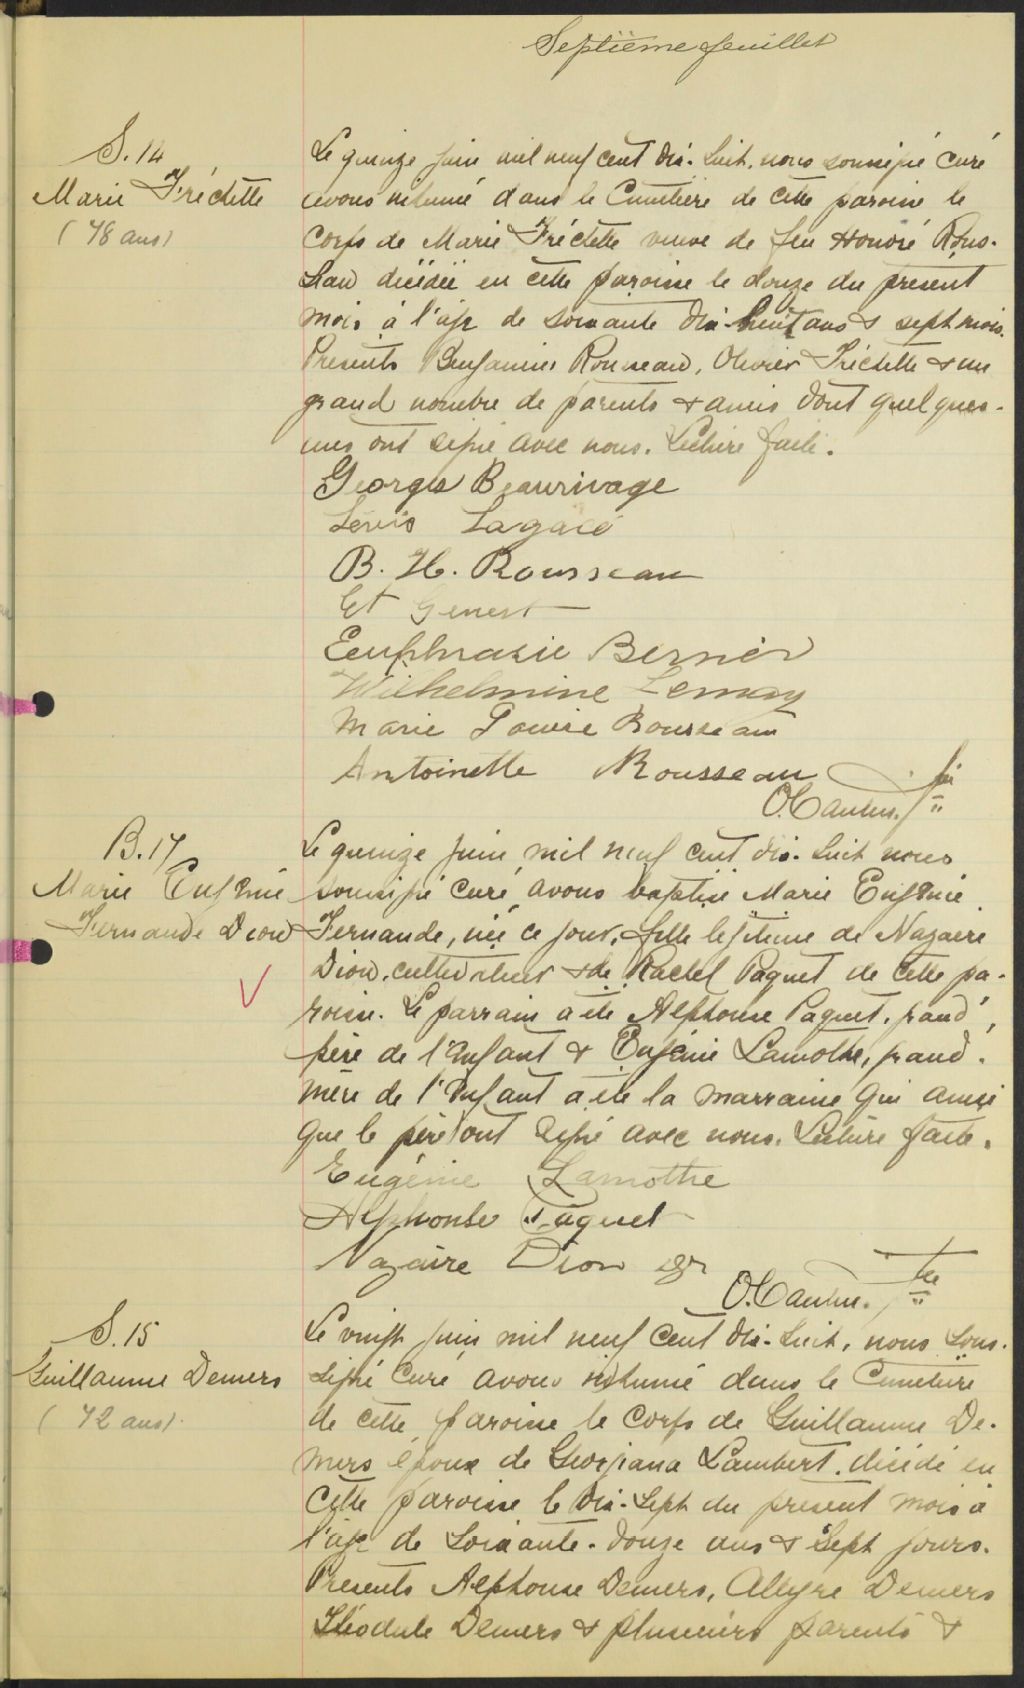 Septième feuillet
S. 14
Marie Fréchette
(78 ans)
Le quinze juin mil neuf cent dix-huit, nous soussigné curé
avons inhumé dans le Cimetière de cette paroisse le
corps de Marie Fréchette veuve de feu Honoré Rous-
seau décédée en cette paroisse le douze du présent
mois à l'âge de soixante dix-huit ans & sept mois.
Présents Benjamin Rousseau, Olivier Fréchette & un
grand nombre de parents & amis dont quelques-
uns ont signé avec nous. Lecture faite.
Georges Beaurivage
Lévis Lagacé
B. H. Rousseau
Et Genest
Euphrasie Bernier
Wilhelmine Lemay
Marie Louise Rousseau
Antoinette Rousseau
O. Cantin. ptre
B. 17
Marie Eugénie
Fernande Dion
Le quinze juin mil neuf cent dix-huit nous
soussigné curé avons baptisé Marie Eugénie
Fernande, née ce jour, fille légitime de Nazaire
Dion, cultivateur & de Rachel Paquet de cette pa-
roisse. Le parrain a été Alphonse Paquet, grand
père de l'enfant & Eugénie Lamothe, grand-
mère de l'enfant a été la marraine qui ainsi
que le père ont signé avec nous. Lecture faite.
Eugénie Lamothe
Alphonse Paquet
Nazaire Dion
O. Cantin. ptre
S. 15
Guillaume Demers
(72 ans).
Le vingt juin mil neuf cent dix-huit, nous sous-
signé curé avons inhumé dans le Cimetière
de cette paroisse le corps de Guillaume De-
mers époux de Georgiana Lambert, décédé en
cette paroisse le dix-sept du présent mois à
l'âge de soixante-douze ans & sept jours.
Présents Alphonse Demers, Allyre Demers
Théodule Demers & plusieurs parents &